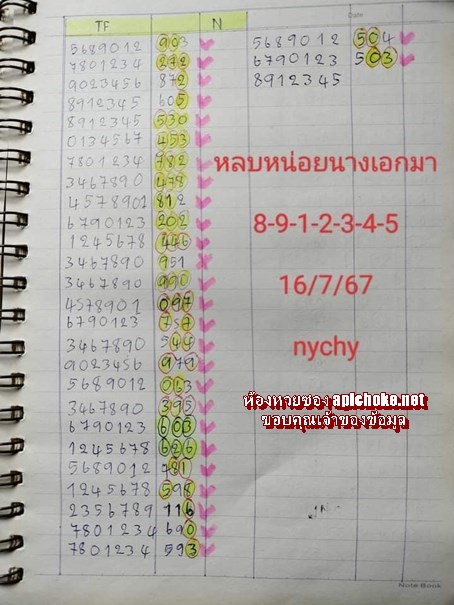 TF N
5689012 903
7801234 272
9023456 872
8912345 605
8912345 530
0134567 453
7801234 782
3467890 478
4578901 812
6790123 202
1245678 446
3467890 951
3467890 990
4578901 097
6790123 757
3467890 544
9023456 979
5689012 063
3467890 395
6790123 603
1245678 626
5689012 781
1245678 598
2356789 116
7801234 690
7801234 593
Date
5689012 504
6790123 503
8912345
หลบหน่อยนางเอกมา
8-9-1-2-3-4-5
16/7/67
nychy
ห้องหวยซอง apichoke.net
ขอบคุณเจ้าของข้อมูล
Note Book